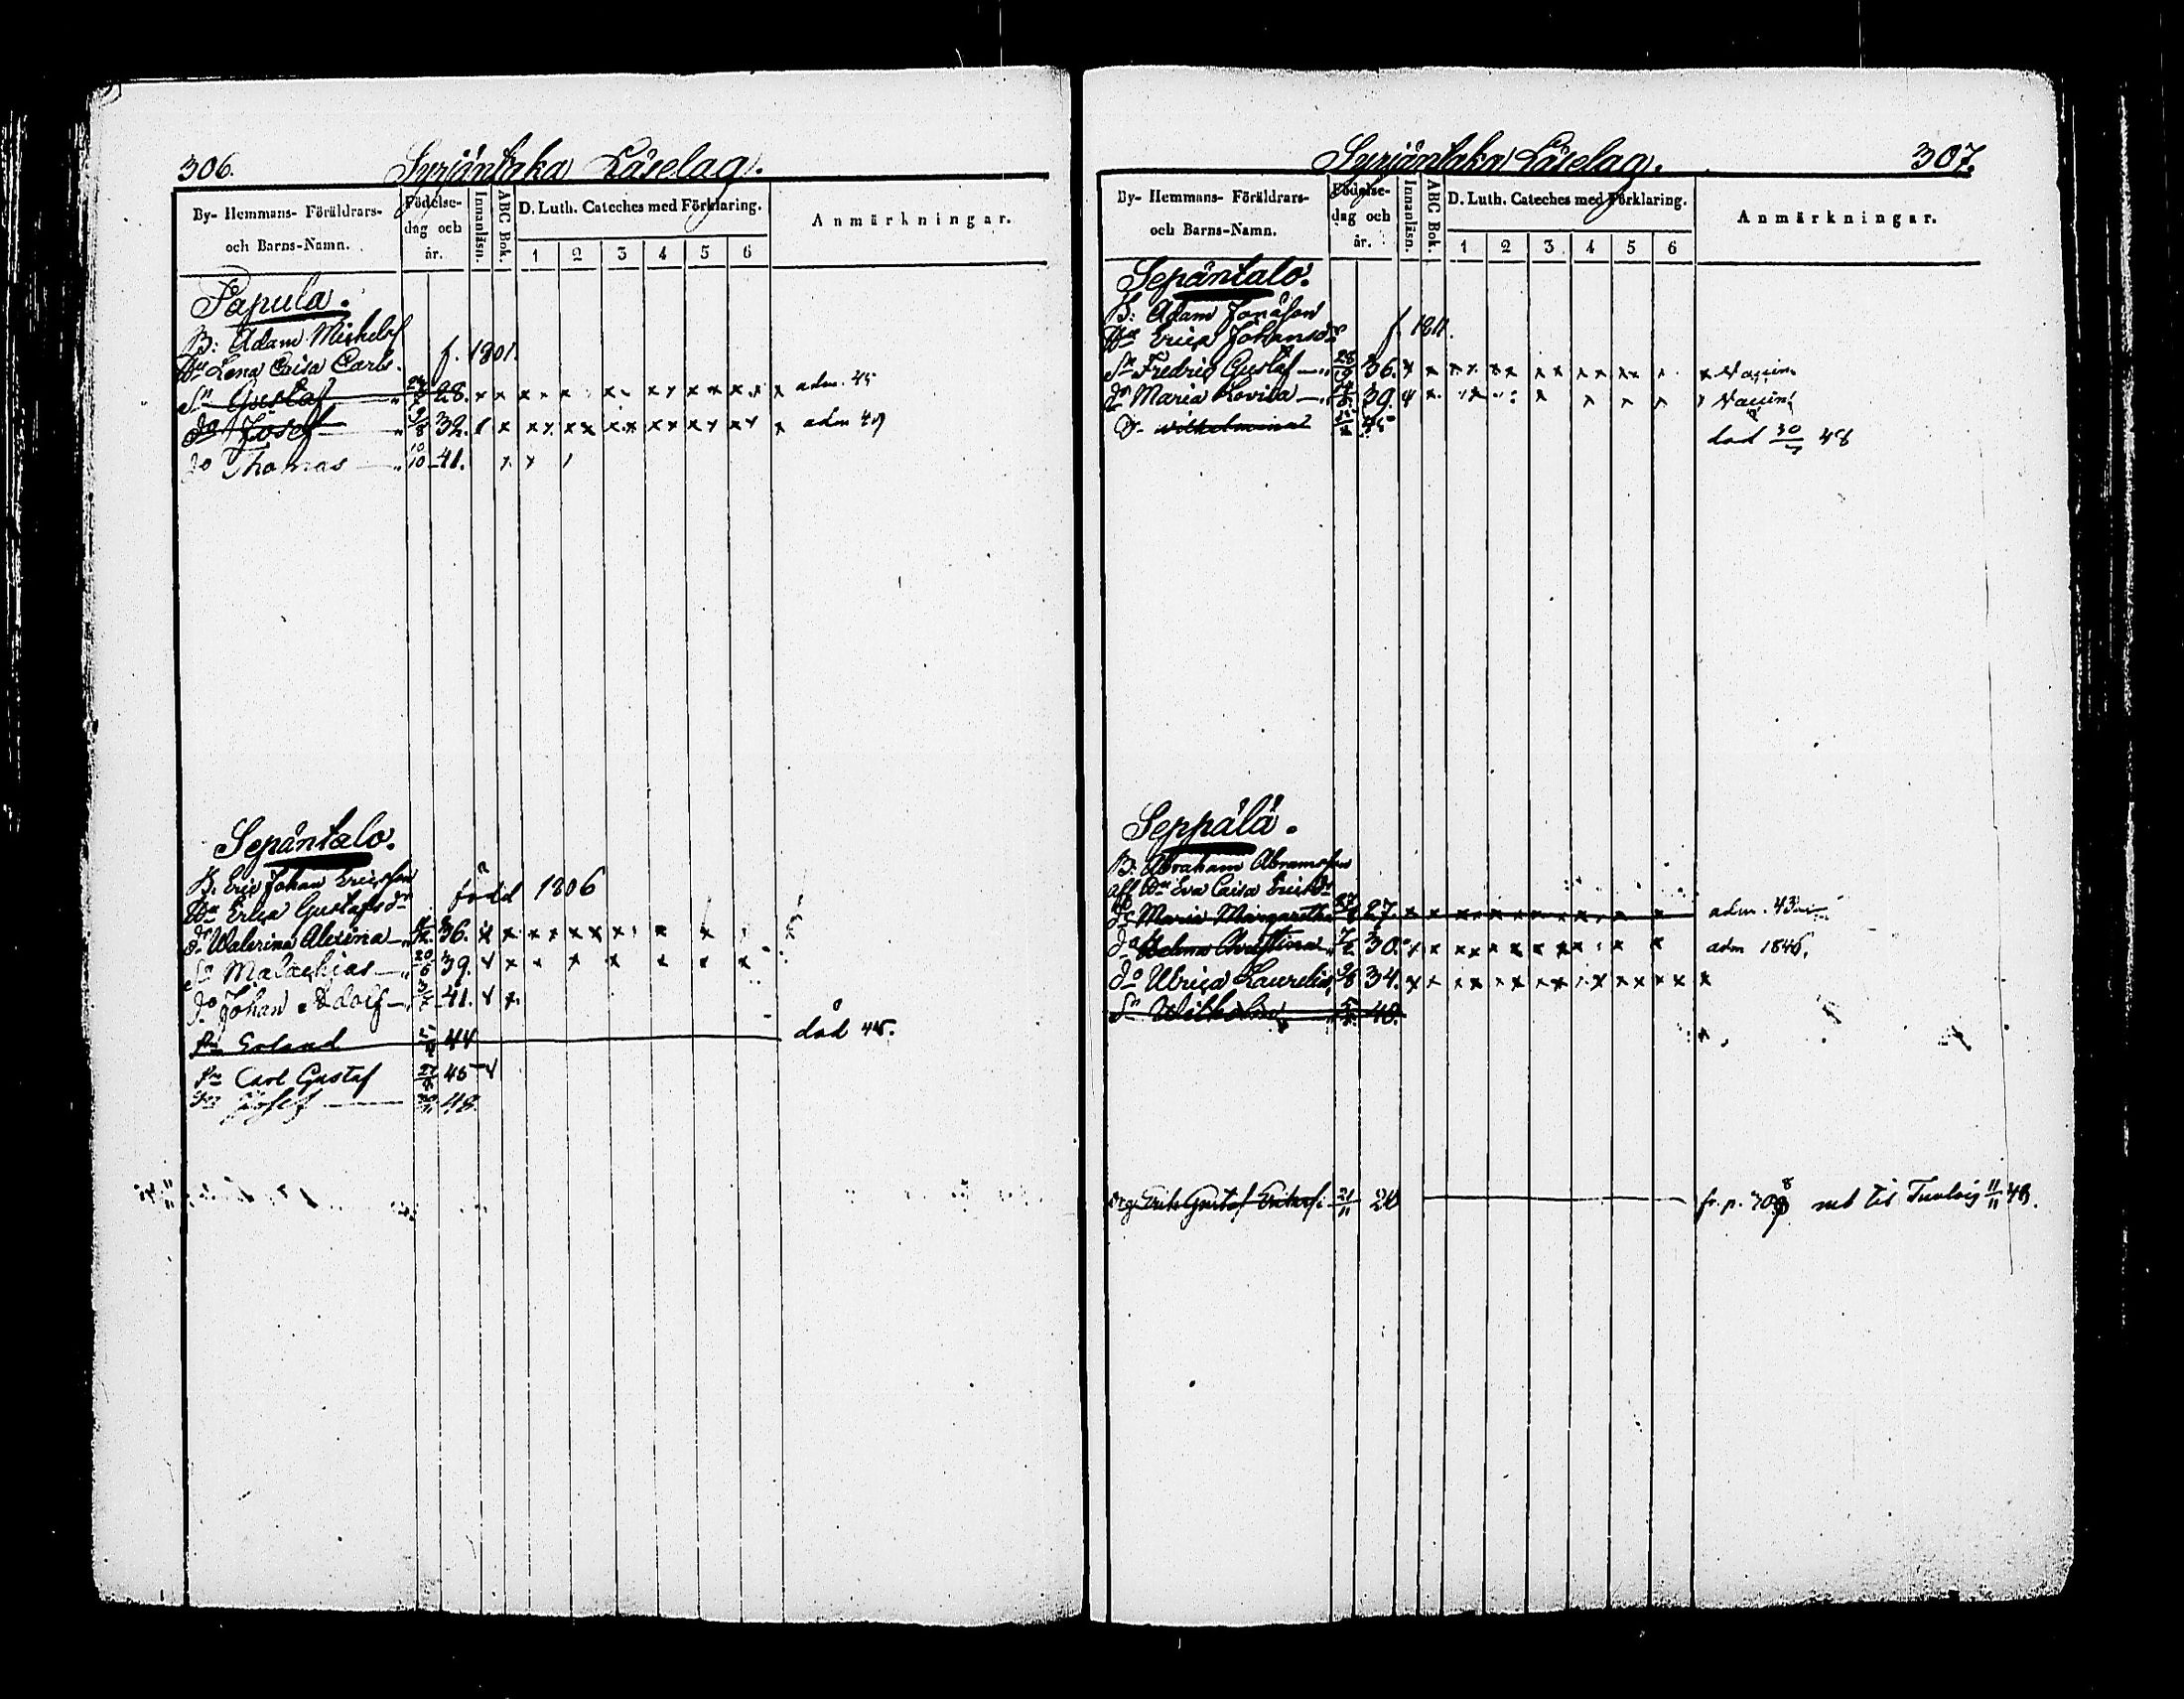 306. Syrjäntaka Läselag.
By- Hemmans- Föräldrars- och Barns-Namn. Födelse- dag och år. Innanläsn. ABC Bok. D. Luth. Cateches med Förklaring. Anmärkningar.
1 2 3 4 5 6
Papula.
B: Adam Michelsf
Hu Lena Caisa Carls. f. 1801.
Sn Gustaf 28. x x x x x x x x x x x adm. 45
do Josef 9/8 32. x x x x x x x x x x x x x adm 49
do Thomas 10/10 41.
Sepäntalo.
B. Eric Johan Ericsson
Hu Erica Gustafsdr född 1806
dr Walerina Alexina 36. x x x x x x x x x
Sn Malachias 20/6 39. x x x x x x x x
do Johan Adolf 41. x x
Sn Erland 44 död 45.
Sn Carl Gustaf 45
Sn Josef 48.
Syrjäntaka Läselag. 307.
By- Hemmans- Föräldrars- och Barns-Namn. Födelse- dag och år. Innanläsn. ABC Bok. D. Luth. Cateches med Förklaring. Anmärkningar.
1 2 3 4 5 6
Sepäntalo.
B: Adam Jonasson
Hu Erica Johansdr f 1811.
Sn Fredric Gustaf 36. x x x x x x x x x x x x
dr Maria Lovisa 39. x x x x x x
D. Wilhelmina 45 död 48
Seppälä.
B: Abraham Abramsson
afl Hu Eva Caisa Ericsdr
dr Maria Margaretha 27. x x x x x x x x x x adm. 43
do Helena Christina 30. x x x x x x x x x x adm 1846.
do Ulrica Laurelia 34. x x x x x x x x x x x x x x
Sn Wilhelm 48.
Erik Gustaf Eriksf. 21/11 fr. p. 308 till 11/11 48.